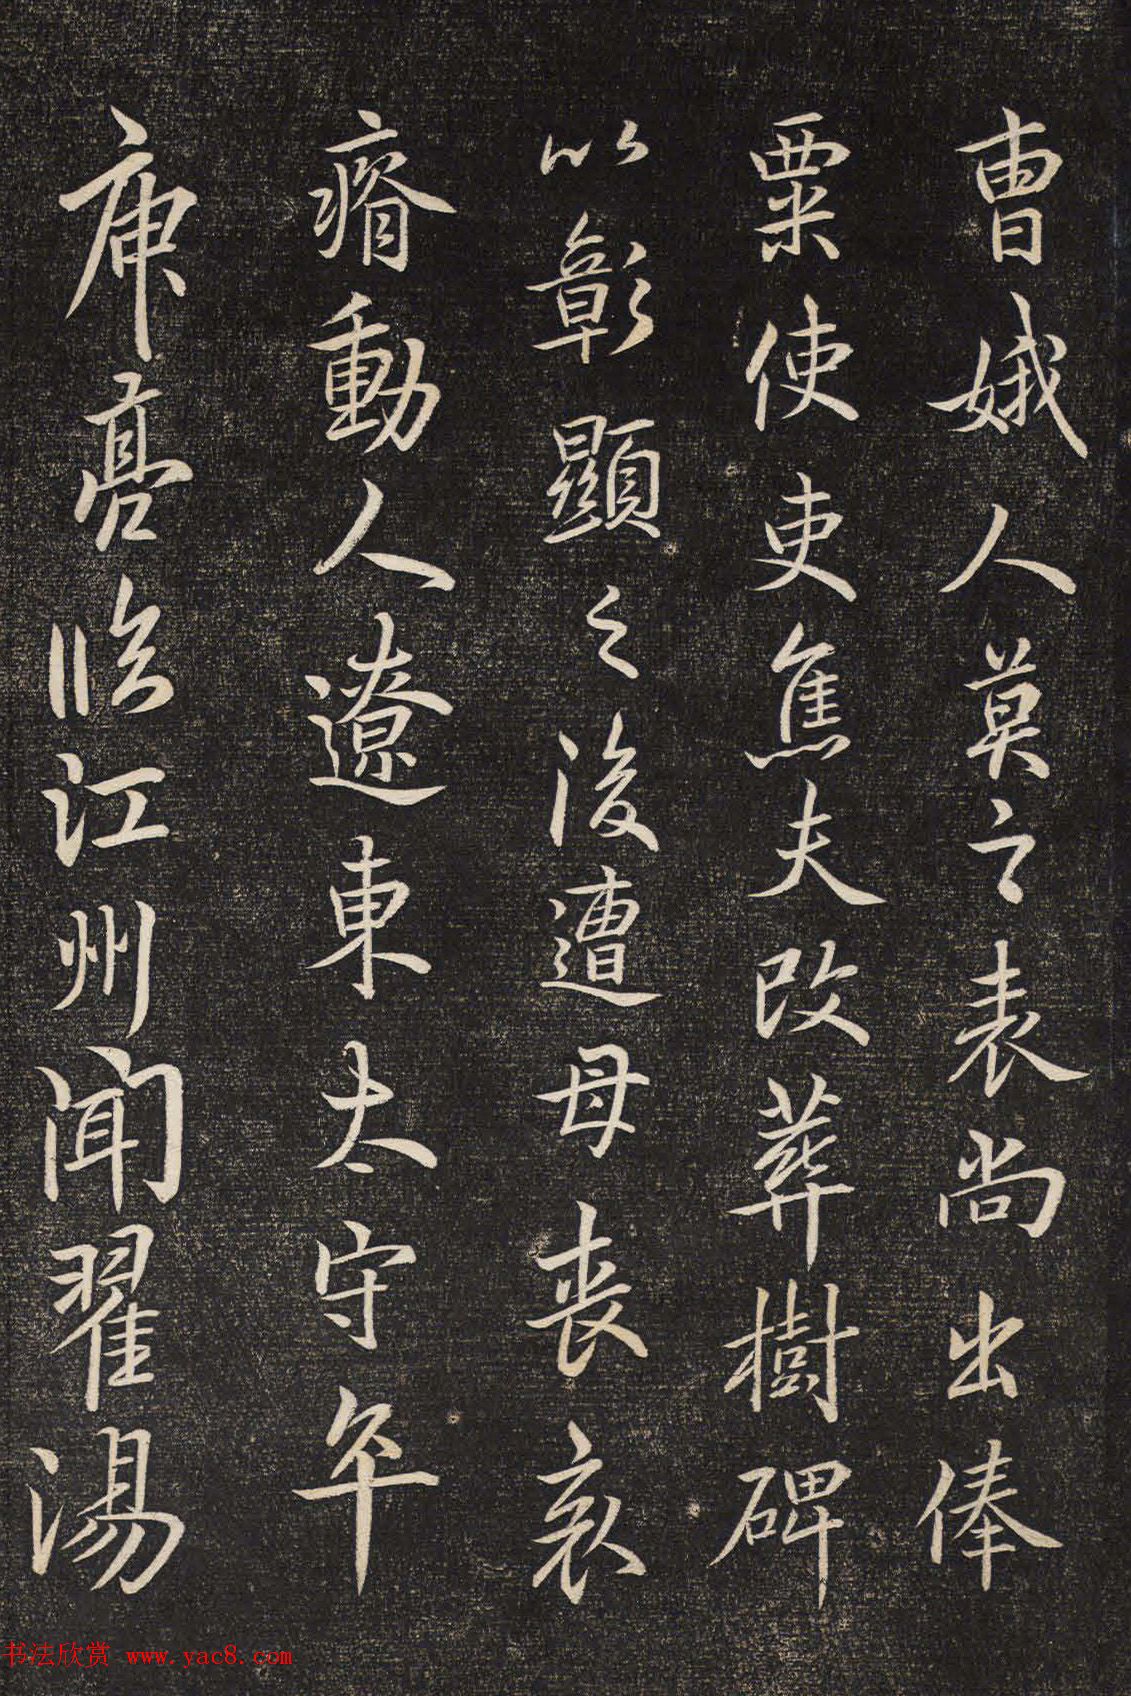 曹娥人莫之表尚出俸
粟使吏焦夫改葬樹碑
以彰顯之後遭母喪哀
瘠動人遼東太守卒
庾亮臨江州聞翟湯
书法欣赏 www.yac8.com